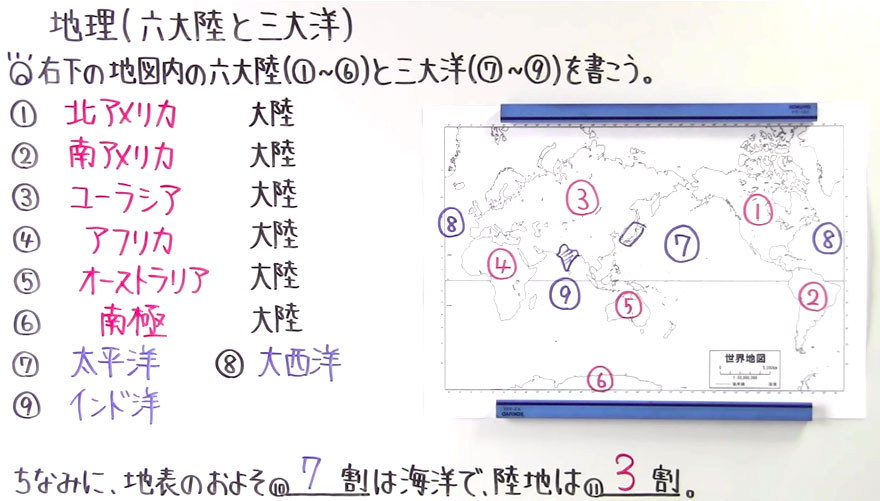 地理(六大陸と三大洋)
右下の地図内の六大陸(①~⑥)と三大洋(⑦~⑨)を書こう。
① 北アメリカ 大陸
② 南アメリカ 大陸
③ ユーラシア 大陸
④ アフリカ 大陸
⑤ オーストラリア 大陸
⑥ 南極 大陸
⑦ 太平洋 ⑧ 大西洋
⑨ インド洋
③ ① ⑧ ⑦ ⑧ ④ ⑨ ⑤ ② ⑥
世界地図
ちなみに、地表のおよそ⑩ 7 割は海洋で、陸地は⑪ 3 割。